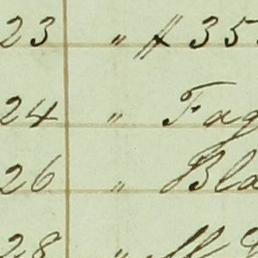 23 " # 35
24 " Fag
26 " Bla
28 "